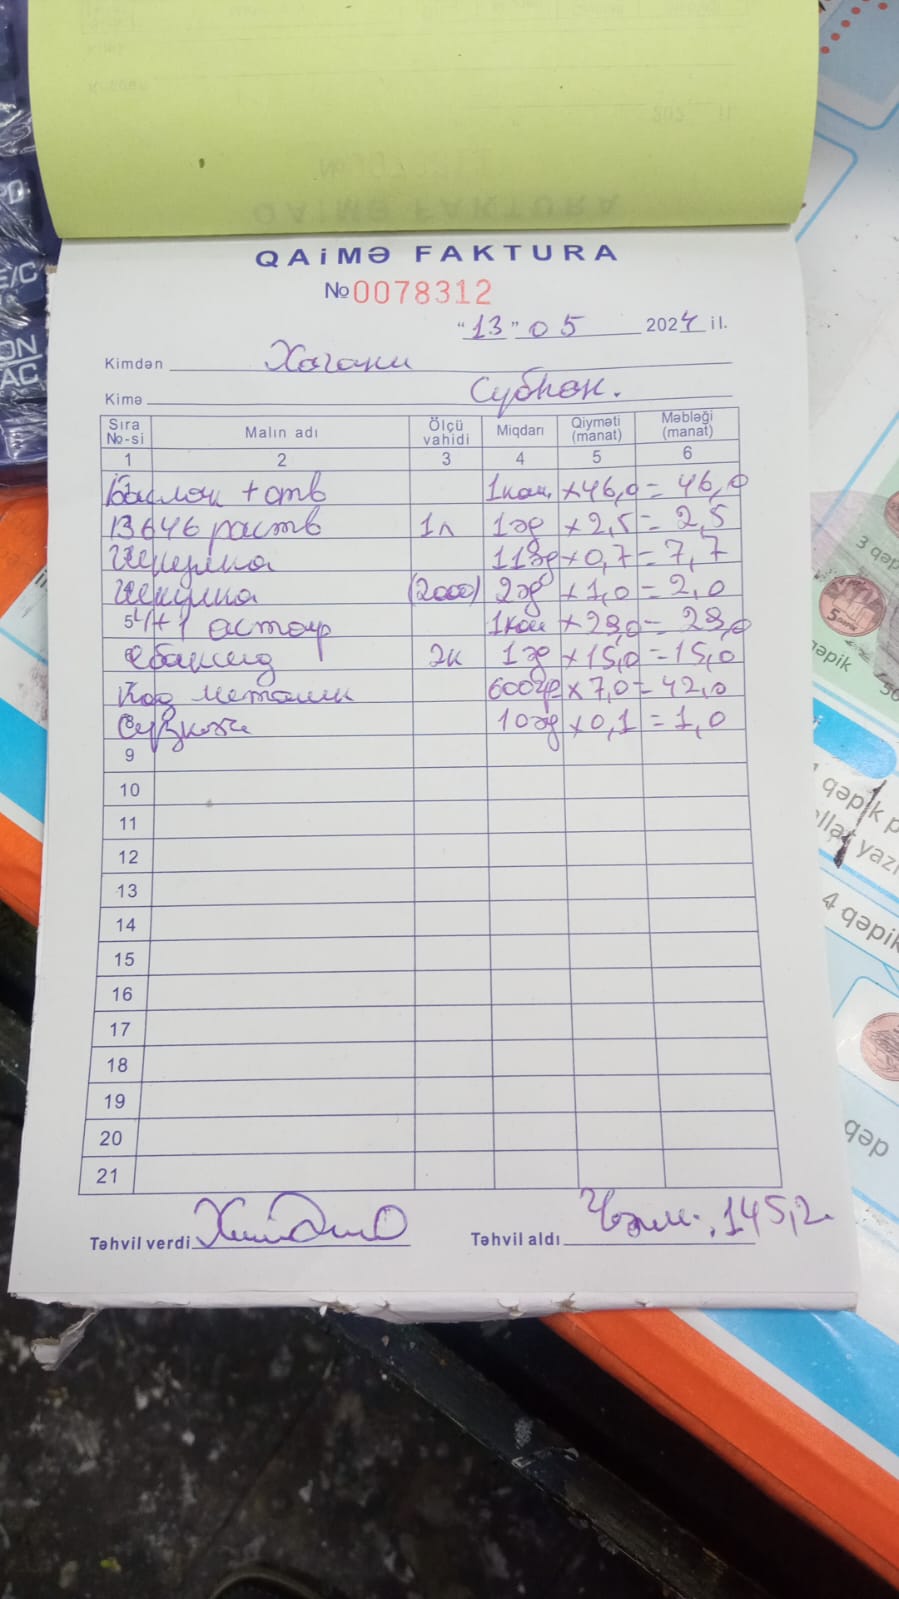 QAİMƏ FAKTURA
№ 0078312
"13" 05 2024 il.
Kimdən Хагани
Kimə Субhан.
Sıra №-si Malın adı Ölçü vahidi Miqdarı Qiyməti (manat) Məbləği (manat)
1 2 3 4 5 6
Баллон + отв 1ком. × 46,0 = 46,0
13646 раств 1л 1əд × 2,5 = 2,5
Шкурка 11əд × 0,7 = 7,7
Шкурка (2000) 2əд × 1,0 = 2,0
4+1 астар 1ком × 29,0 = 29,0
2к 1əд × 15,0 = 15,0
Код металик 600гр × 7,0 = 42,0
Сүзкəч 10əд × 0,1 = 1,0
9
10
11
12
13
14
15
16
17
18
19
20
21
Təhvil verdi
Təhvil aldı Чəми. 145,2
ON
AC
3 qəp
5 qəpik
4 qəpik
qəp